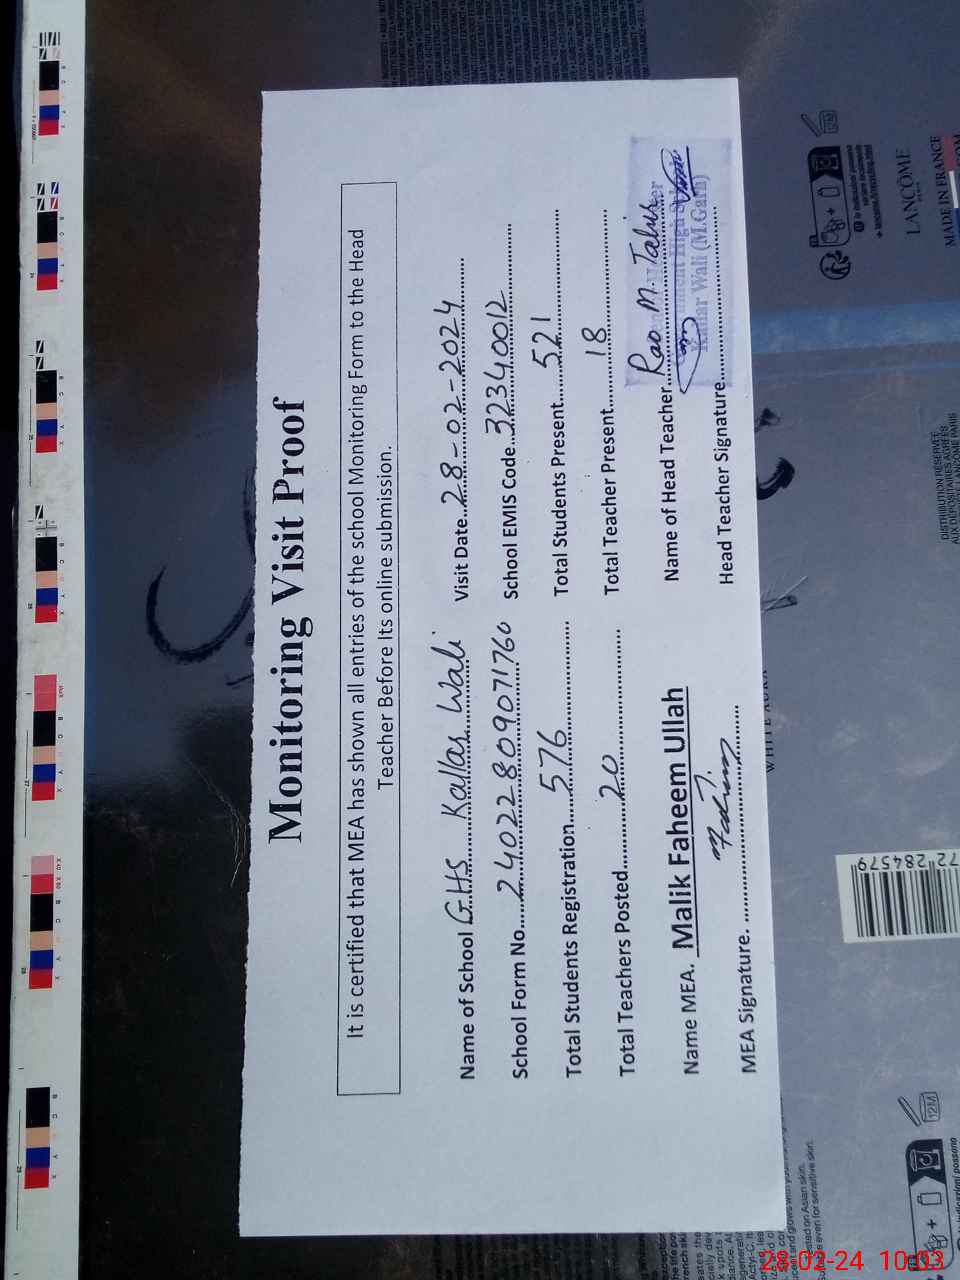 Monitoring Visit Proof
It is certified that MEA has shown all entries of the school Monitoring Form to the Head
Teacher Before Its online submission.
Name of School GHS Kallar Wali Visit Date 28-02-2024
School Form No. 24022809071760 School EMIS Code 32340012
Total Students Registration 576 Total Students Present 521
Total Teachers Posted 20 Total Teacher Present 18
Name MEA. Malik Faheem Ullah Name of Head Teacher Rao M. Tahir
MEA Signature. Head Teacher Signature
High
Wali (M.Garh)
LANCÔME
MADE IN FRANCE
DISTRIBUTION RÉSERVÉE
AUX DÉPOSITAIRES AGRÉÉS
72 284579
12M
28-02-24 10:03